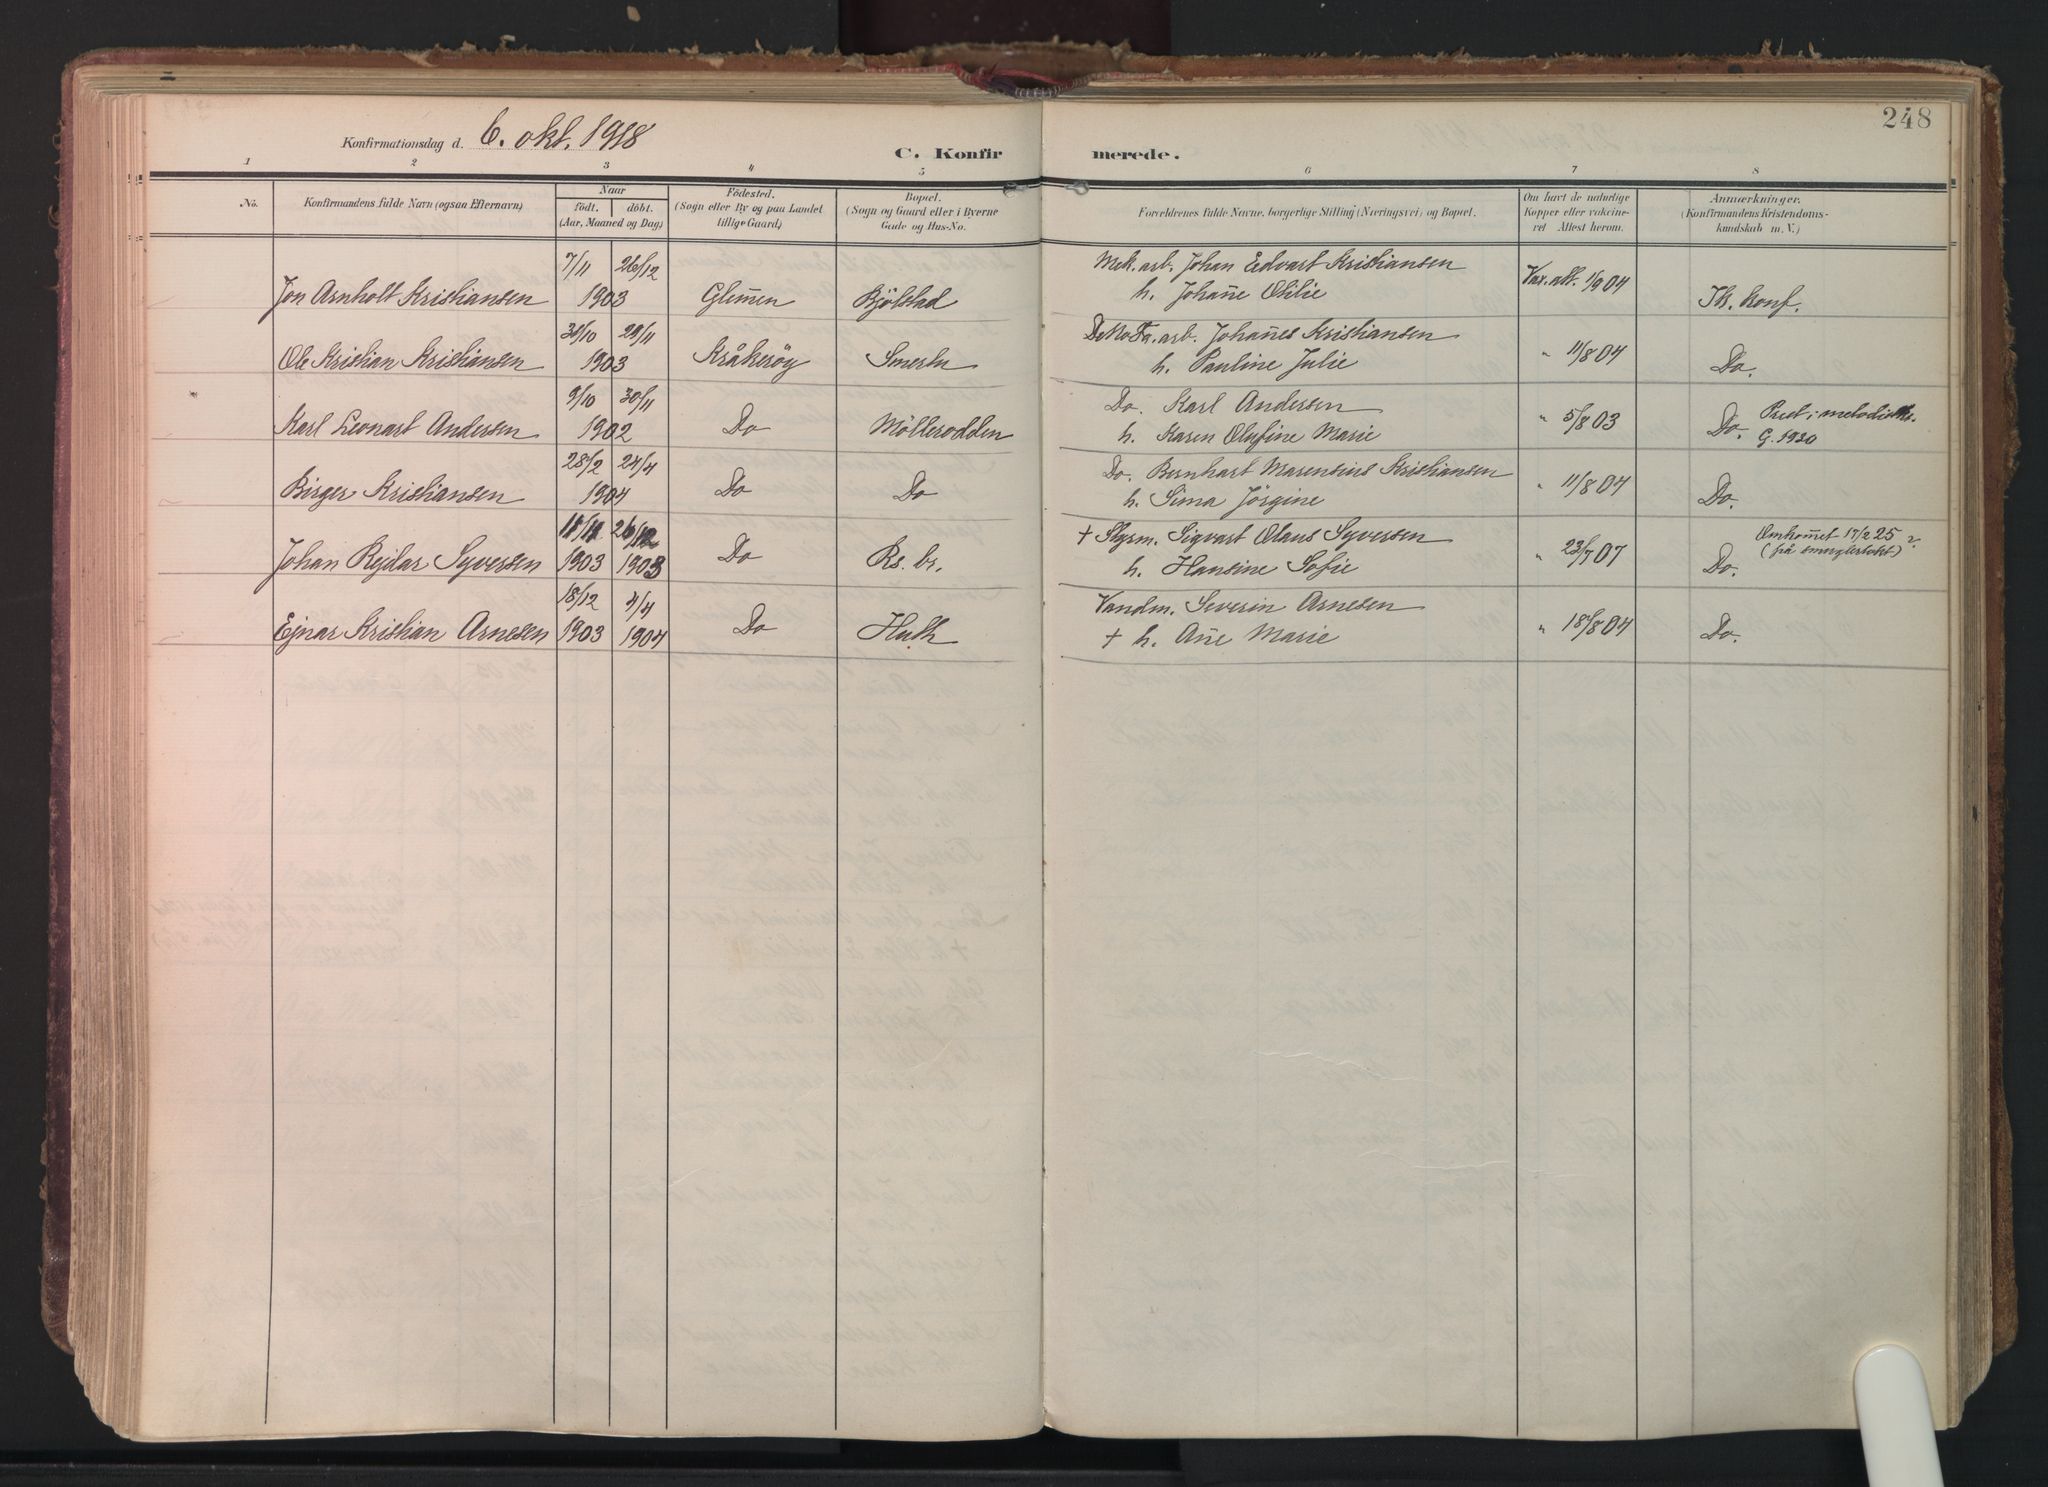 248
Konfirmationsdag d. 6. okt. 1918
C. Konfirmerede.
1 2 3 4 5 6 7 8
No.
Konfirmandens fulde Navn (ogsaa Efternavn).
Naar
født. døbt.
(Aar, Maaned og Dag)
Fødested.
(Sogn eller By og paa Landet
tillige Gaard.)
Bopæl.
(Sogn og Gaard eller i Byerne
Gade og Hus-No.
Forældrenes fulde Navne, borgerlige Stilling (Næringsvei) og Bopæl.
Om havt de naturlige
Kopper eller vakcine-
ret Attest herom.
Anmærkninger.
(Konfirmandens Kristendoms-
kundskab m. V.)
7/11 26/12 Mek. arb. Johan Edvart Kristiansen Vax. att. 1/9 04
Jon Arnholt Kristiansen 1903 Glemen Bjölstad h. Johan̄e Otilie Tk. konf.
30/10 29/11 arb. Johan̄es Kristiansen
Ole Kristian Kristiansen 1903 Kråkeröy Smertu h. Pauline Julie " 11/8 04 Do.
9/10 30/11 Do. Karl Andersen
Karl Leonart Andersen 1902 Do Möllerodden h. Karen Olufine Marie " 5/8 03 Do. Prest i
G. 1920
28/2 24/4 Do. Bernhart Marensius Kristiansen
Birger Kristiansen 1904 Do Do h. Sima Jörgine " 11/8 04 Do.
26/12 + Styrm. Sigvart Olaus Syversen Omkom̄et 17/2 25 ?
(på smuglertokt)
Johan Rejdar Syversen 1903 1903 Do Rs. br. h. Hansine Sofie " 23/7 07 Do.
18/12 4/4 Vandm. Severin Arnesen
Ejnar Kristian Arnesen 1903 1904 Do Huth + h. An̄e Marie " 18/8 04 Do.